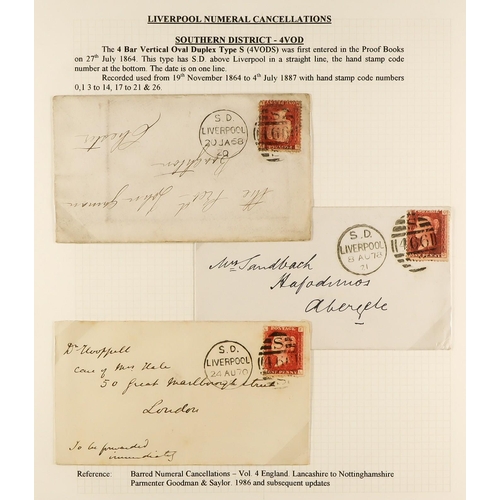 LIVERPOOL NUMERAL CANCELLATIONS
SOUTHERN DISTRICT - 4VOD
The 4 Bar Vertical Oval Duplex Type S (4VODS) was first entered in the Proof Books
on 27th July 1864. This type has S.D. above Liverpool in a straight line, the hand stamp code
number at the bottom. The date is on one line.
Recorded used from 19th November 1864 to 4th July 1887 with hand stamp code numbers
0,1 3 to 14, 17 to 21 & 26.
S.D.
LIVERPOOL
20 JA 68
The Revd John
Chester
S.D.
LIVERPOOL
8 AU 78
466
Mrs Sandbach
Hafodunos
Abergele
S.D.
LIVERPOOL
24 AU 70
S
Care of Mrs Hale
50 Great Marlborough Street
London
To be forwarded
immediately
Reference: Barred Numeral Cancellations – Vol. 4 England. Lancashire to Nottinghamshire
Parmenter Goodman & Saylor. 1986 and subsequent updates.